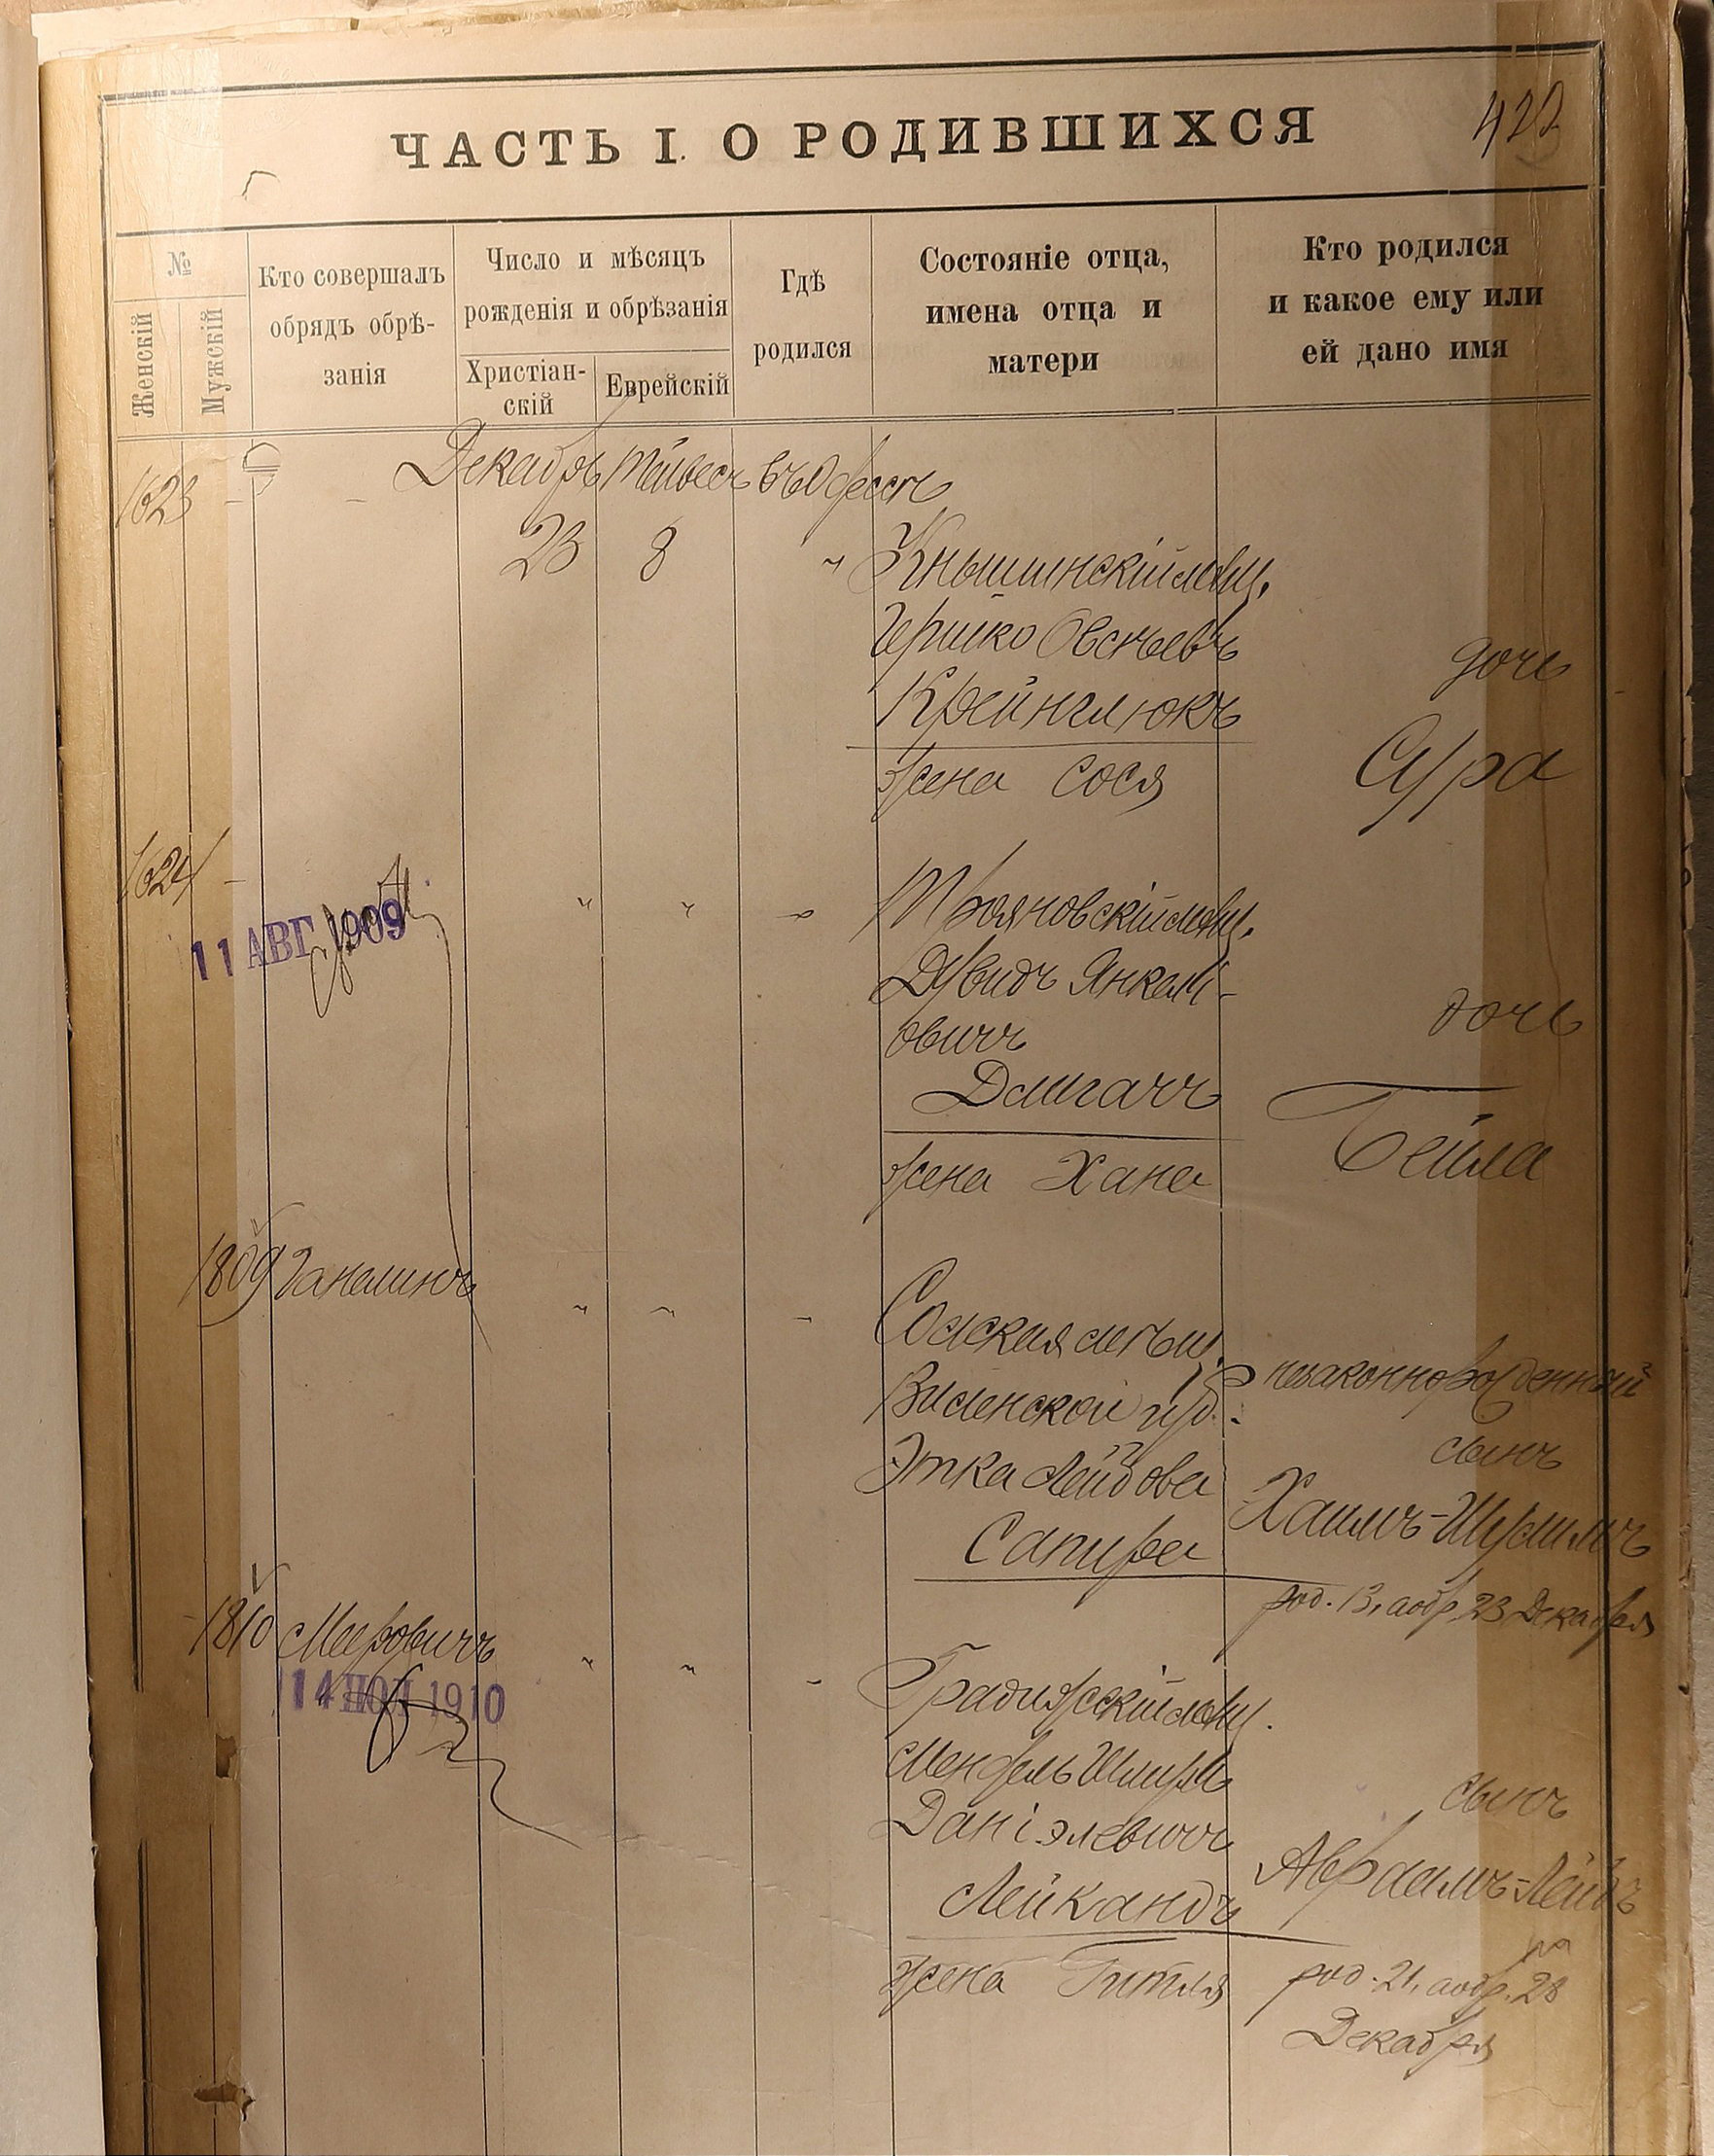 422
ЧАСТЬ I. О РОДИВШИХСЯ
№
Женскій
Мужскій
Кто совершалъ
обрядъ обрѣ-
занія
Число и мѣсяцъ
рожденія и обрѣзанія
Христіан-
скій
Еврейскій
Гдѣ
родился
Состояніе отца,
имена отца и
матери
Кто родился
и какое ему или
ей дано имя
1623 - - Декабрь Тейвесъ въ Одессѣ
23 8 " Кнышинскій мѣщ.
Гершко Овсѣевъ
Крейнглюкъ
жена Сося
дочь
Сура
1624 -
11 АВГ 1909
" " " Трояновскій мѣщ.
Дувидъ Янкел-
овичъ
Длигачъ
жена Хана
дочь
Бейла
1809 Ганелинъ " " - Сольская мѣщ.
Виленской губ.
Этка Лейбова
Сапира
незаконнорожденный
сынъ
Хаимъ-Шулимъ
род. 13, а обр. 23 Декабря
1810 Мееровичъ
14 1910
" " - Градижскій мѣщ.
Мендель Шмулъ
Даніэлевичъ
Лейкандъ
жена Гитля
сынъ
Авраамъ-Лейбъ
род. 21, а обр. 28
Декабря